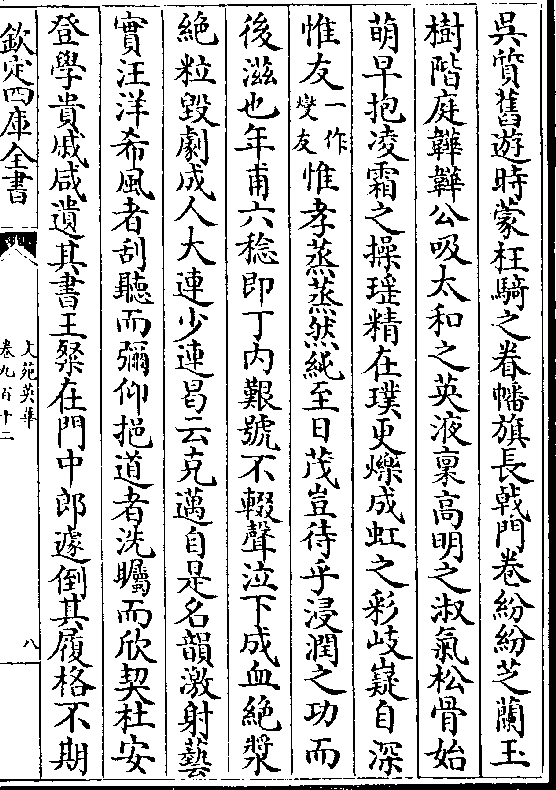 吳質舊遊時蒙枉騎之眷幡旗長㦸門巷紛紛芝蘭玉
樹階庭韡韡公吸太和之英液稟高明之淑氣松骨始
萌早抱凌霜之操瑶精在璞更爍成虹之彩岐嶷自深
惟友一作爕友惟孝蒸蒸然純至日茂豈待乎浸潤之功而
後滋也年甫六稔即丁内艱號不輟聲泣下成血絶漿
絶粒毁劇成人大連少連曷云克邁自是名韻激射藝
實汪洋希風者刮聽而彌仰挹道者洗矚而欣契杜安
登學貴戚咸遺其書王粲在門中郎遽倒其履格不期
欽定四庫全書
文苑英華
卷九百十二
八